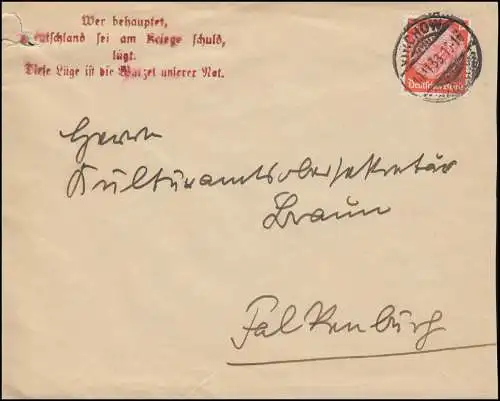 Wer behauptet,
Deutschland sei am Kriege schuld,
lügt.
Diese Lüge ist die Wurzel unserer Not.
Deutsches Reich
Herrn
Kulturamtsobersekretär
Braun
Falkenburg